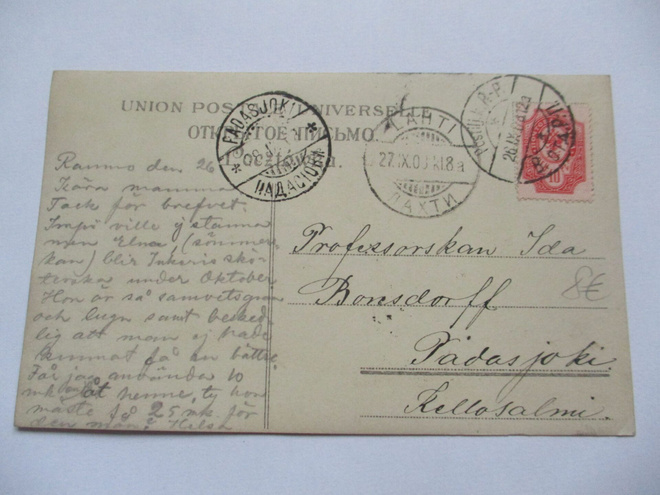 UNION POSTALE UNIVERSELLE
ОТКРЫТОЕ ПИСЬМО.
PADASJOKI
ПАДАСІОКИ
LAHTI
27.IX.09.XI.8a
ЛАХТИ
Raumo den 26
Kära mamma
Tack för brefvet.
Impi ville ej stanna
men Elna, (sömmers
kan) blir Inkeris sköt
erska under Oktober.
Hon är så samvetsgran
och lugn samt behed
lig att man ej hade
kunnat få en bättre.
Får jag använda 10
mk åt henne, ty hon
måste få 25 mk. för
den mån? Helsn
Professorskan Ida
Bonsdorff
Padasjoki
Kellosalmi.
8€
10